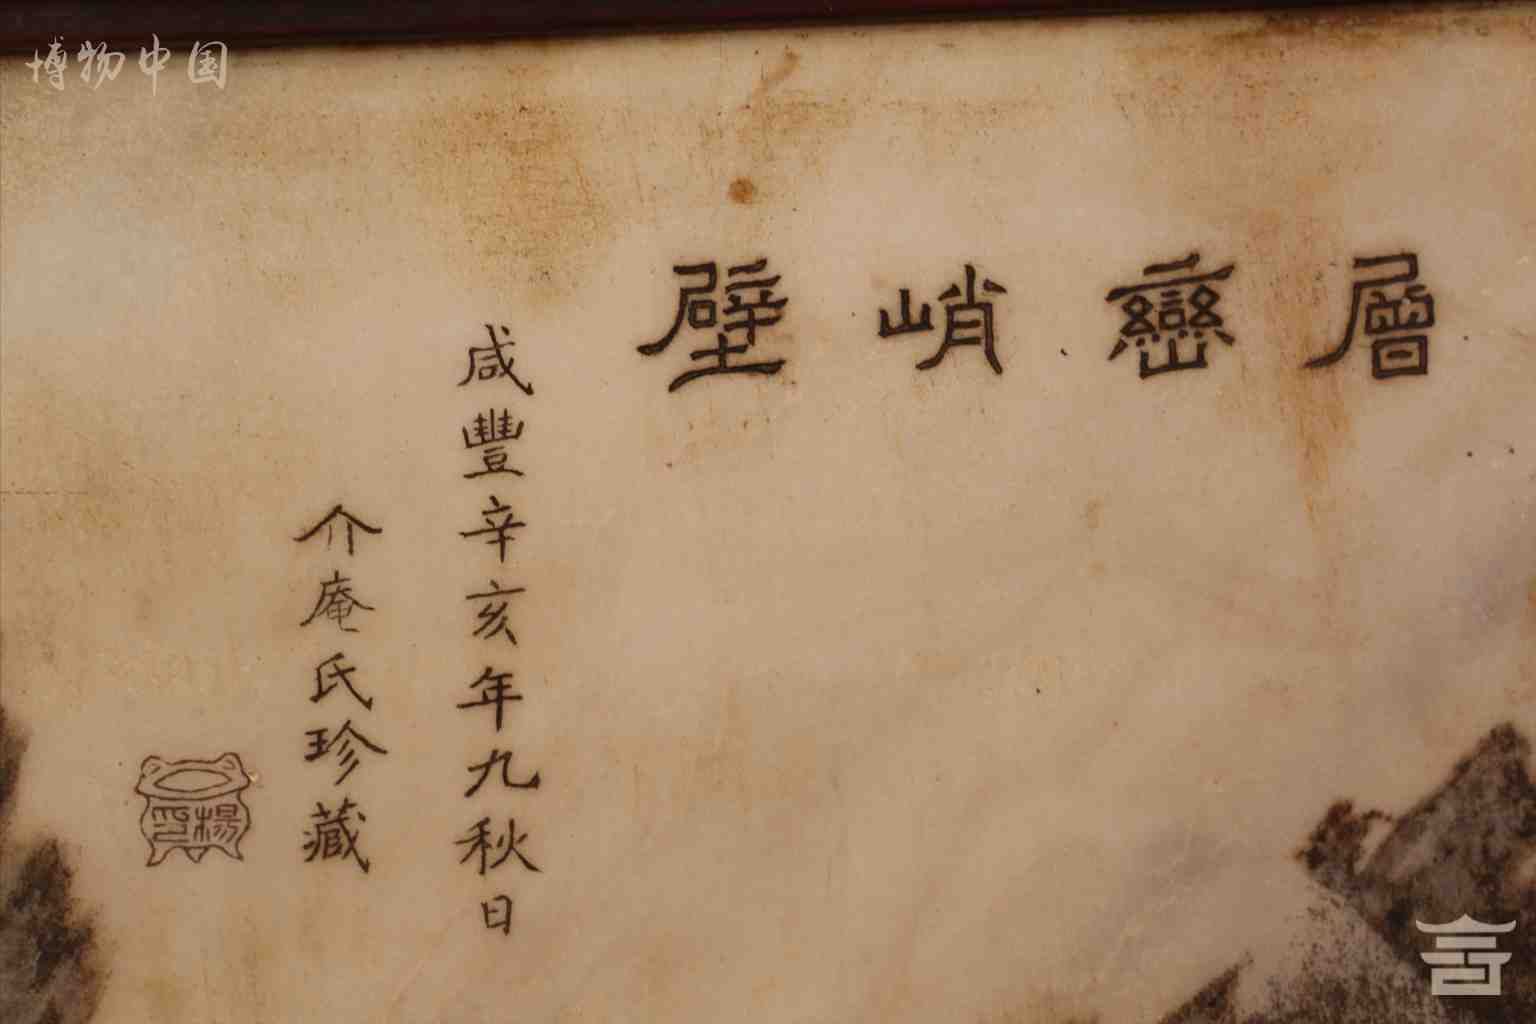 層巒峭壁
咸豐辛亥年九秋日
介庵氏珍藏
楊印
博物中国